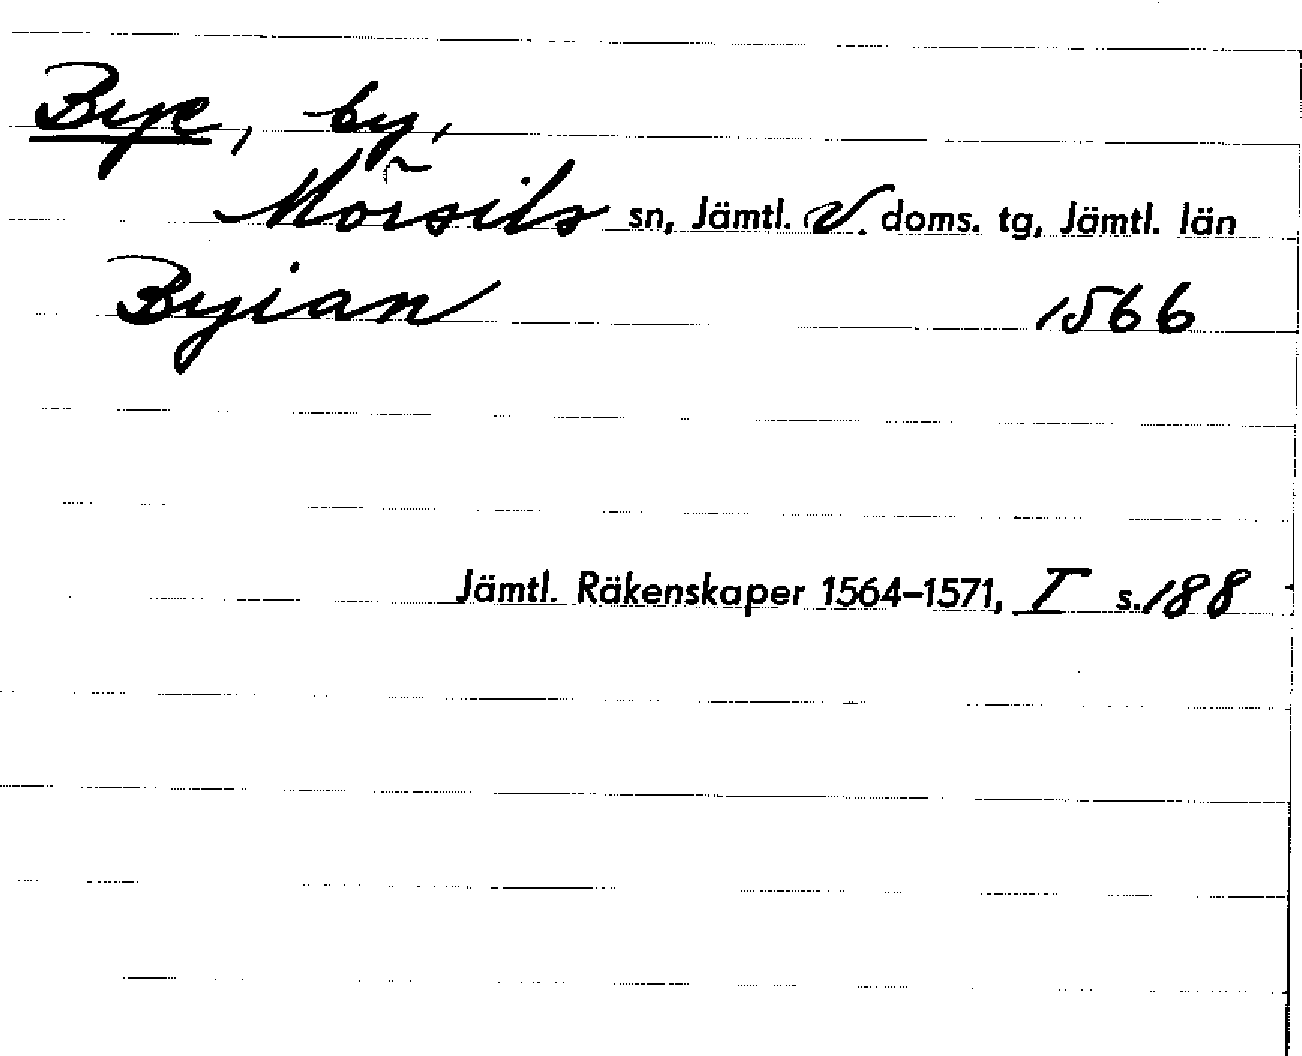 Bye, by,
Mörsils sn, Jämtl. V. doms. tg, Jämtl. län
Byian 1566
Jämtl. Räkenskaper 1564–1571, I s. 188